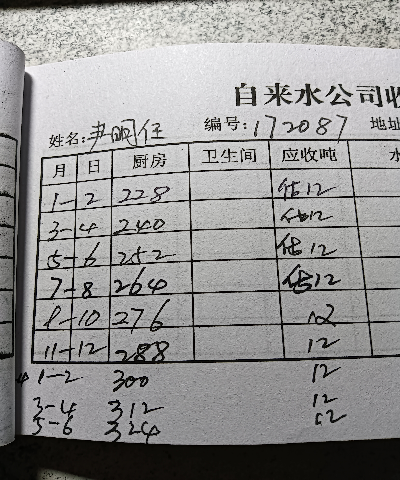 自来水公司收
姓名:尹明任 编号:172087 地址
月 日 厨房 卫生间 应收吨 水
1-2 228 估12
3-4 240 估12
5-6 252 估12
7-8 264 估12
9-10 276 12
11-12 288 12
1-2 300 12
3-4 312 12
5-6 324 12